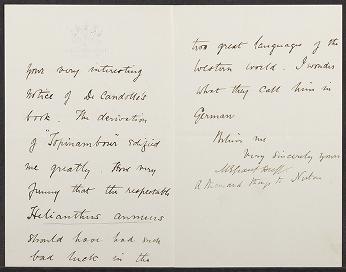 your very interesting
notice of De Candolle's
book. The derivation
of "Topinambour" edified
me greatly. How very
funny that the respectable
Helianthus annuus
should have had such
bad luck in the
two great languages of the
Western world. I wonder
what they call him in
German
Believe me
Very sincerely yours
A thousand things to